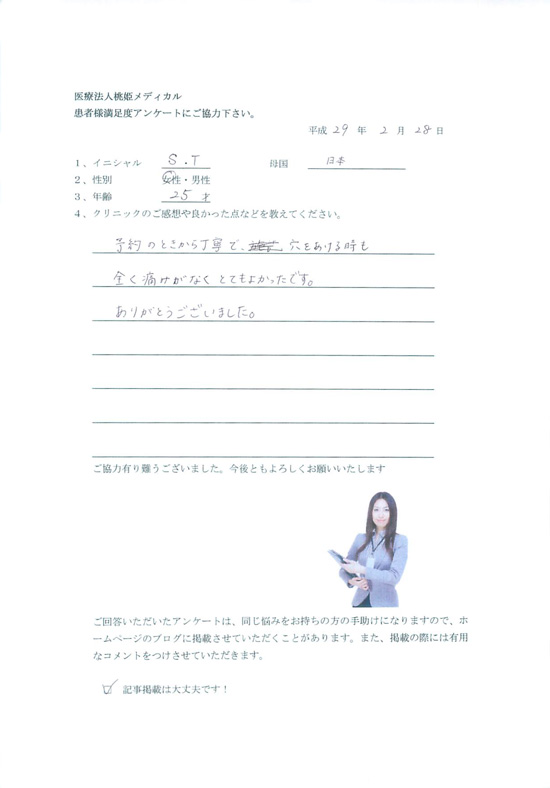 医療法人桃姫メディカル
患者様満足度アンケートにご協力下さい。
平成 29 年 2 月 28 日
1、イニシャル S.T 母国 日本
2、性別 女性・男性
3、年齢 25才
4、クリニックのご感想や良かった点などを教えてください。
予約のときから丁寧で、穴をあける時も
全く痛みがなくとてもよかったです。
ありがとうございました。
ご協力有り難うございました。今後ともよろしくお願いいたします
ご回答いただいたアンケートは、同じ悩みをお持ちの方の手助けになりますので、ホ
ームページのブログに掲載させていただくことがあります。また、掲載の際には有用
なコメントをつけさせていただきます。
☑ 記事掲載は大丈夫です！